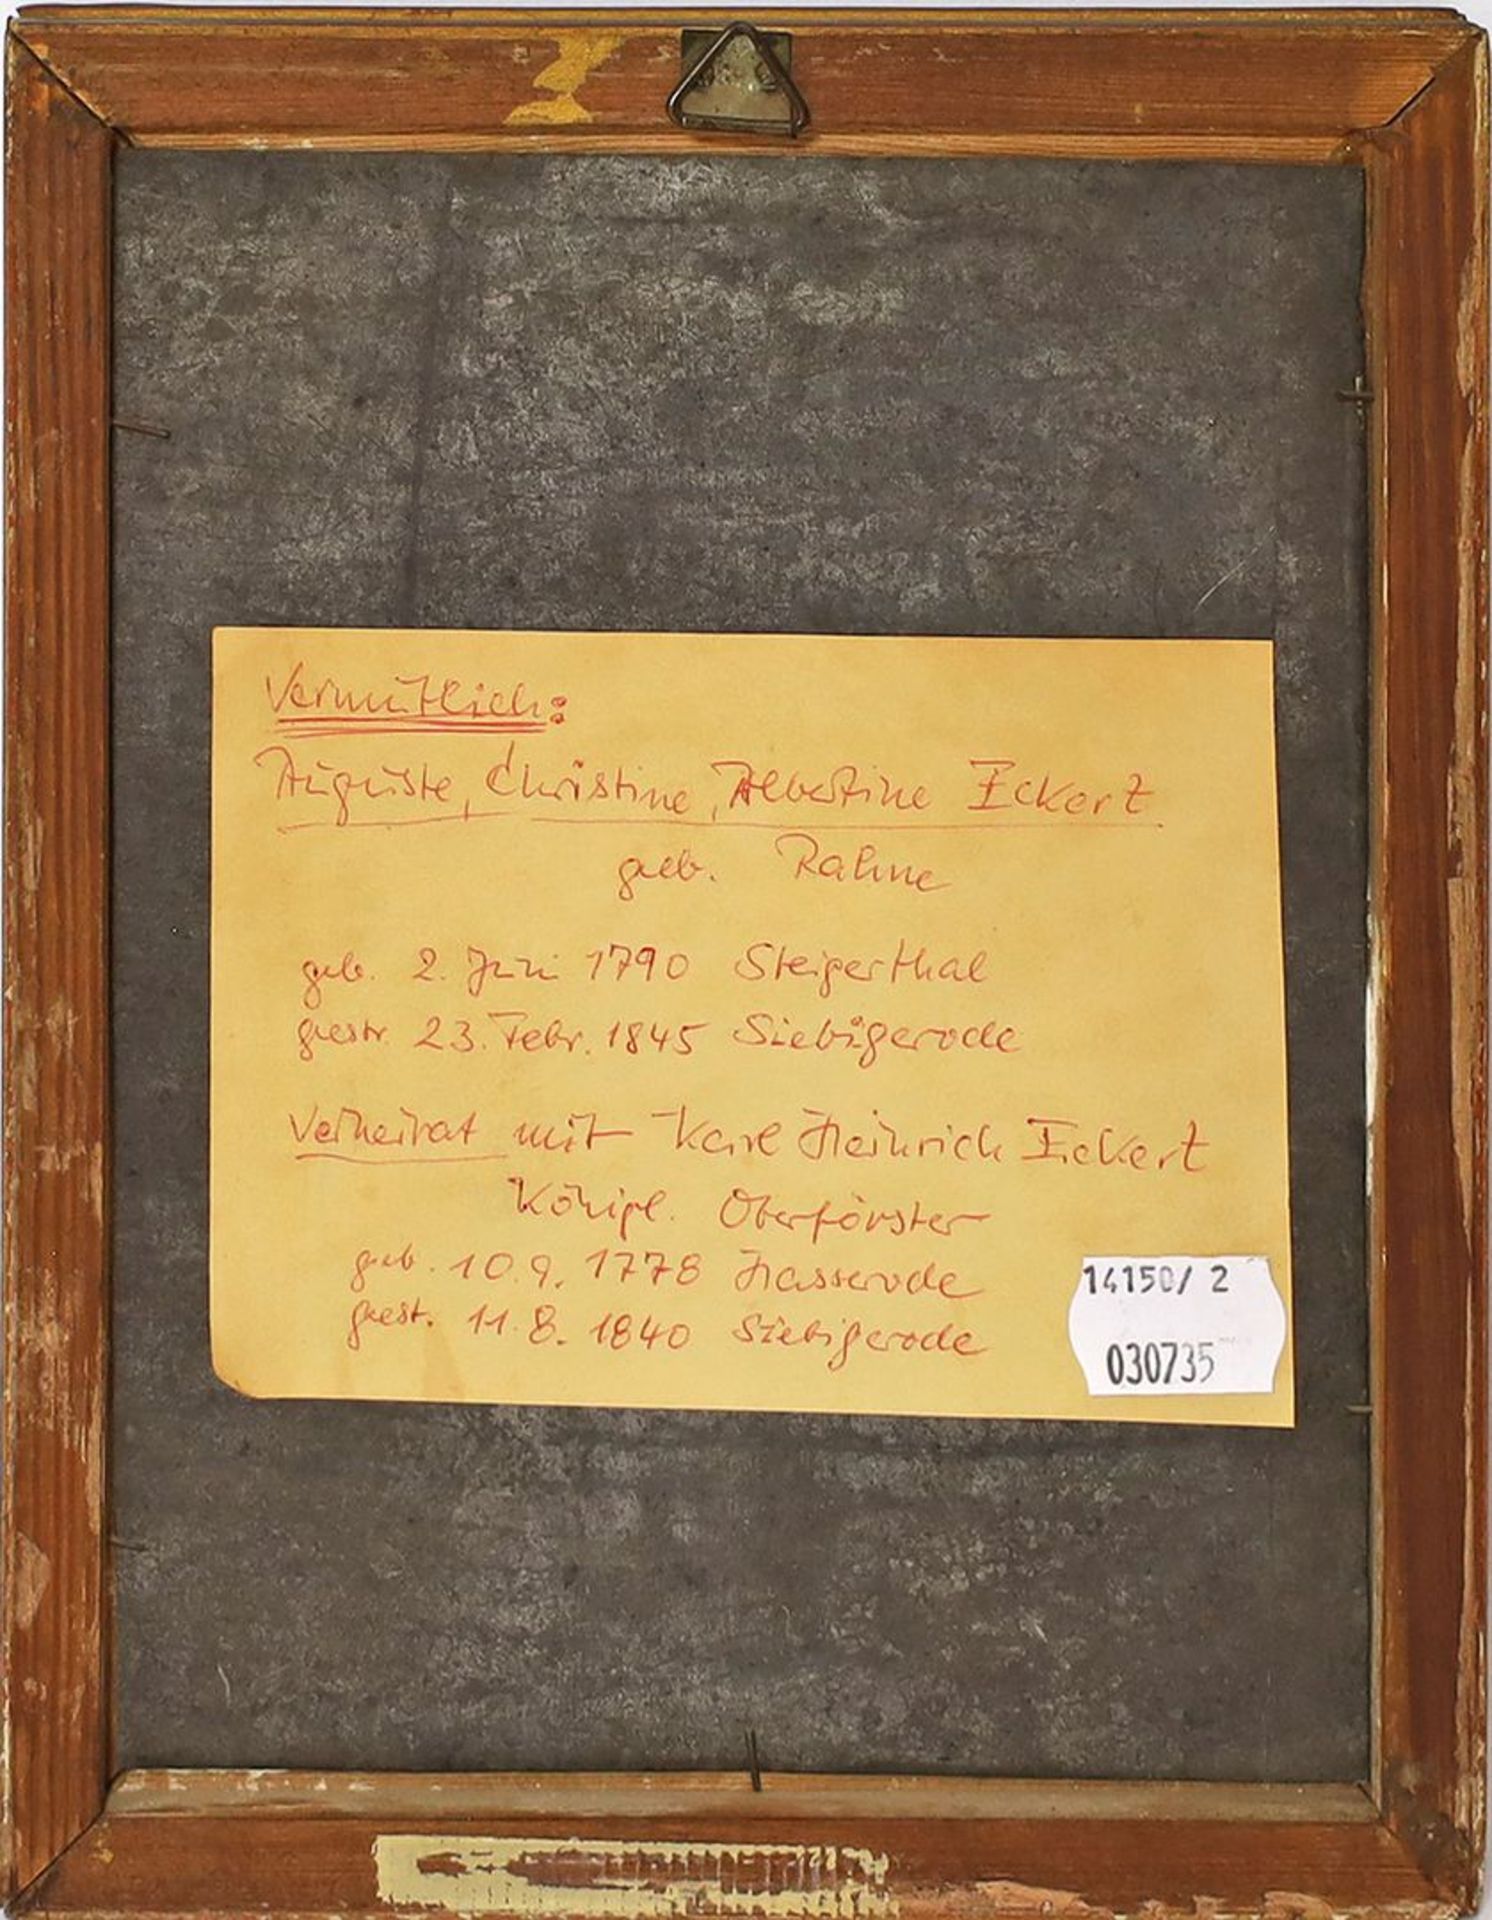 Vermutlich:
Auguste, Christine, Albertine Eckert
geb. Rahne
geb. 2. Juni 1790 Steigerthal
gestr. 23. Febr. 1845 Siebigerode
Verheirat mit Karl Heinrich Eckert
Königl. Oberförster
geb. 10.9.1778 Hasserode
gest. 11.8.1840 Siebigerode
14150/ 2
030735